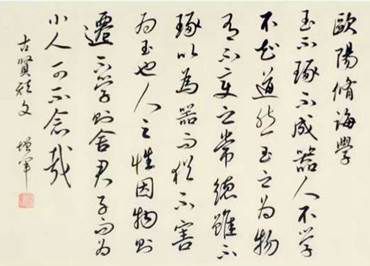 歐陽脩誨學
玉不琢不成器人不學
不知道然玉之為物
有不變之常德雖不
琢以為器而猶不害
為玉也人之性因物則
遷不學則舍君子而為
小人可不念哉
古賢短文